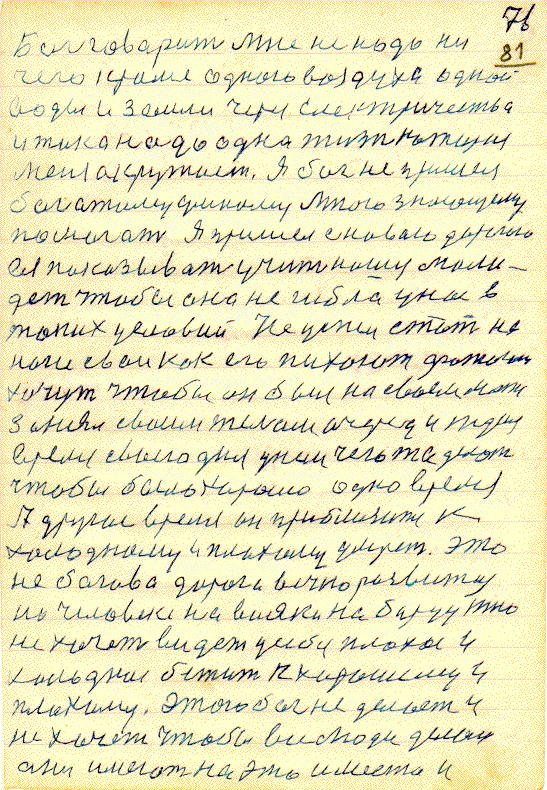 76
81
Бог говорит мне не надо ни
чего кроме одного воздуха одной
воды и земли через електричества
и тока надо одна жизнь которая
меня окружает. Я бог не пришел
богатому умному много знающему
помогат Я пришел с новою дорогою
ея показыват учит нашу моло-
деж чтобы она не гибла у нас в
таких условий Не успел стат на
ноги свои как его пихают
хочут чтобы он был на своем
занял своим телом очеред и ждал
время своего дня у нас чего то делат
чтобы было хорошо одно время
А другое время он приближает к
холодному и плохому умрет. Это
не богова дорога вечно развитая
но человека на всяких на бытту кто
не хочет видет у себя плохое и
холодное бежит к хорошему и
плохому. Этого бог не делает и
не хочет чтобы все люди делали
они имеют на это и место и